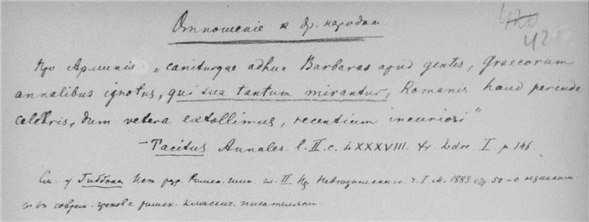 Отношенiе к др. народам
420
422
Про Арминiя „caniturque adhuc Barbaras apud gentes, Graecorum
annalibus ignotus, qui sua tantum mirantur, Romanis haud perinde
celebris, dum vetera extollimus, recentium incuriosi"
— Tacitus Annales l. II. c. LXXXVIII. I. p. 146.
См. у Гиббона Ист. разр. Римск. имп. гл. II. Пр. Неведомскаго ч. I. М. 1883. стр 50 – о
соврем. греков с римск. классич. писателями.